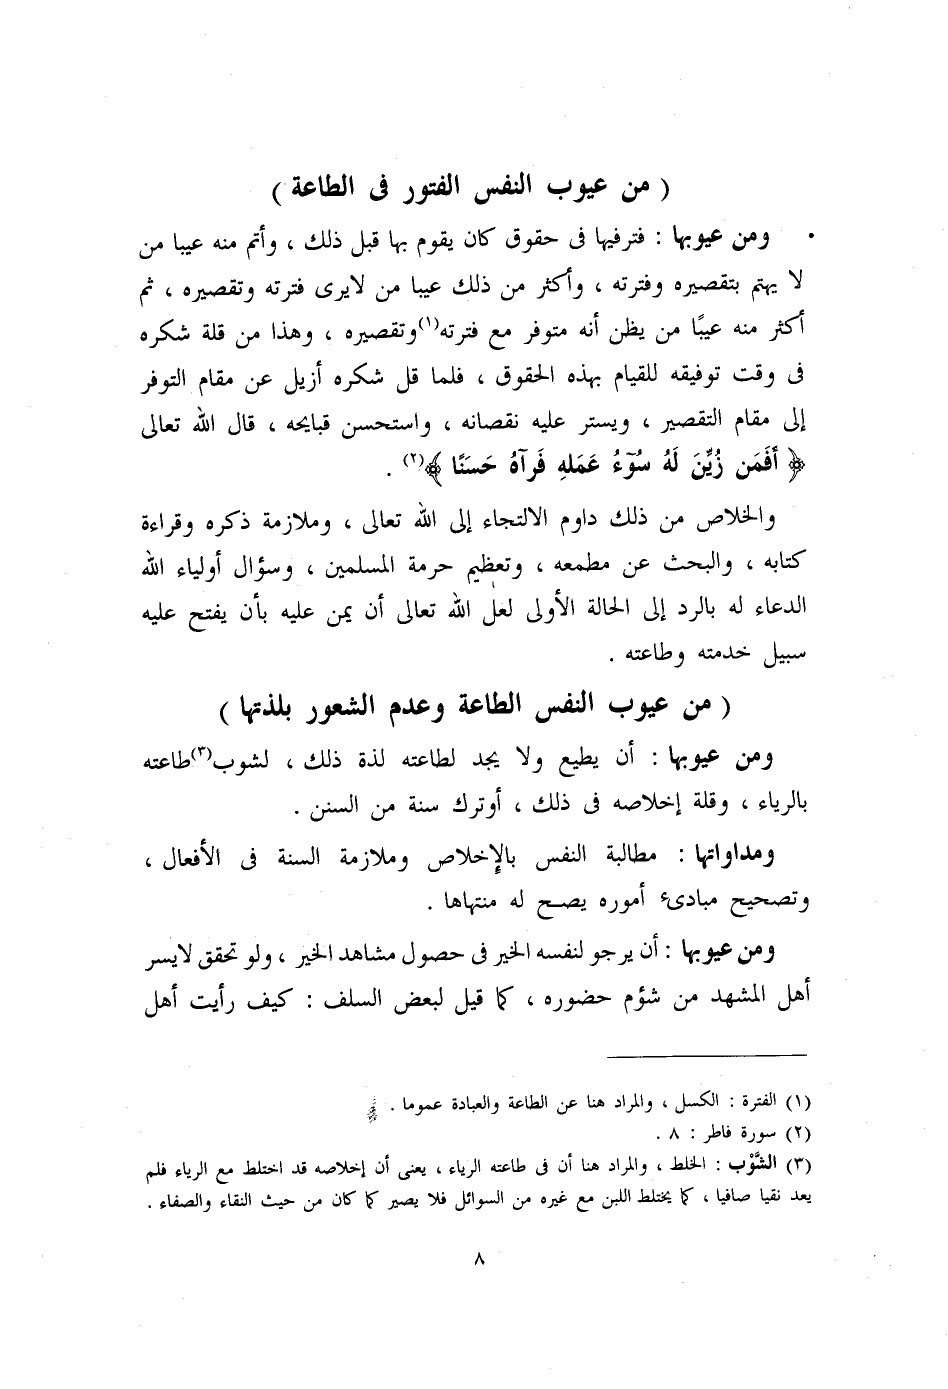 ( من عيوب النفس الفتور فى الطاعة )
• ومن عيوبها : فترفيها فى حقوق كان يقوم بها قبل ذلك ، وأتم منه عيبا من
لا يهتم بتقصيره وفترته ، وأكثر من ذلك عيبا من لايرى فترته وتقصيره ، ثم
أكثر منه عيبًا من يظن أنه متوفر مع فترته(١)وتقصيره ، وهذا من قلة شكره
فى وقت توفيقه للقيام بهذه الحقوق ، فلما قل شكره أزيل عن مقام التوفر
إلى مقام التقصير ، ويستر عليه نقصانه ، واستحسن قبايحه ، قال الله تعالى
﴿ أَفَمَن زُيِّنَ لَهُ سُوٓءُ عَمَلهِ فَرآهُ حَسَنًا ﴾(٢) .
والخلاص من ذلك داوم الالتجاء إلى الله تعالى ، وملازمة ذكره وقراءة
كتابه ، والبحث عن مطمعه ، وتعظيم حرمة المسلمين ، وسؤال أولياء الله
الدعاء له بالرد إلى الحالة الأولى لعل الله تعالى أن يمن عليه بأن يفتح عليه
سبيل خدمته وطاعته .
( من عيوب النفس الطاعة وعدم الشعور بلذتها )
ومن عيوبها : أن يطيع ولا يجد لطاعته لذة ذلك ، لشوب(٣)طاعته
بالرياء ، وقلة إخلاصه فى ذلك ، أوترك سنة من السنن .
ومداواتها : مطالبة النفس بالإخلاص وملازمة السنة فى الأفعال ،
وتصحيح مبادىء أموره يصح له منتهاها .
ومن عيوبها : أن يرجو لنفسه الخير فى حصول مشاهد الخير ، ولو تحقق لايسر
أهل المشهد من شؤم حضوره ، كما قيل لبعض السلف : كيف رأيت أهل
(١) الفترة : الكسل ، والمراد هنا عن الطاعة والعبادة عموما .
(٢) سورة فاطر : ٨ .
(٣) الشَّوْب : الخلط ، والمراد هنا أن فى طاعته الرياء ، يعنى أن إخلاصه قد اختلط مع الرياء فلم
يعد نقيا صافيا ، كما يختلط اللبن مع غيره من السوائل فلا يصير كما كان من حيث النقاء والصفاء .
٨